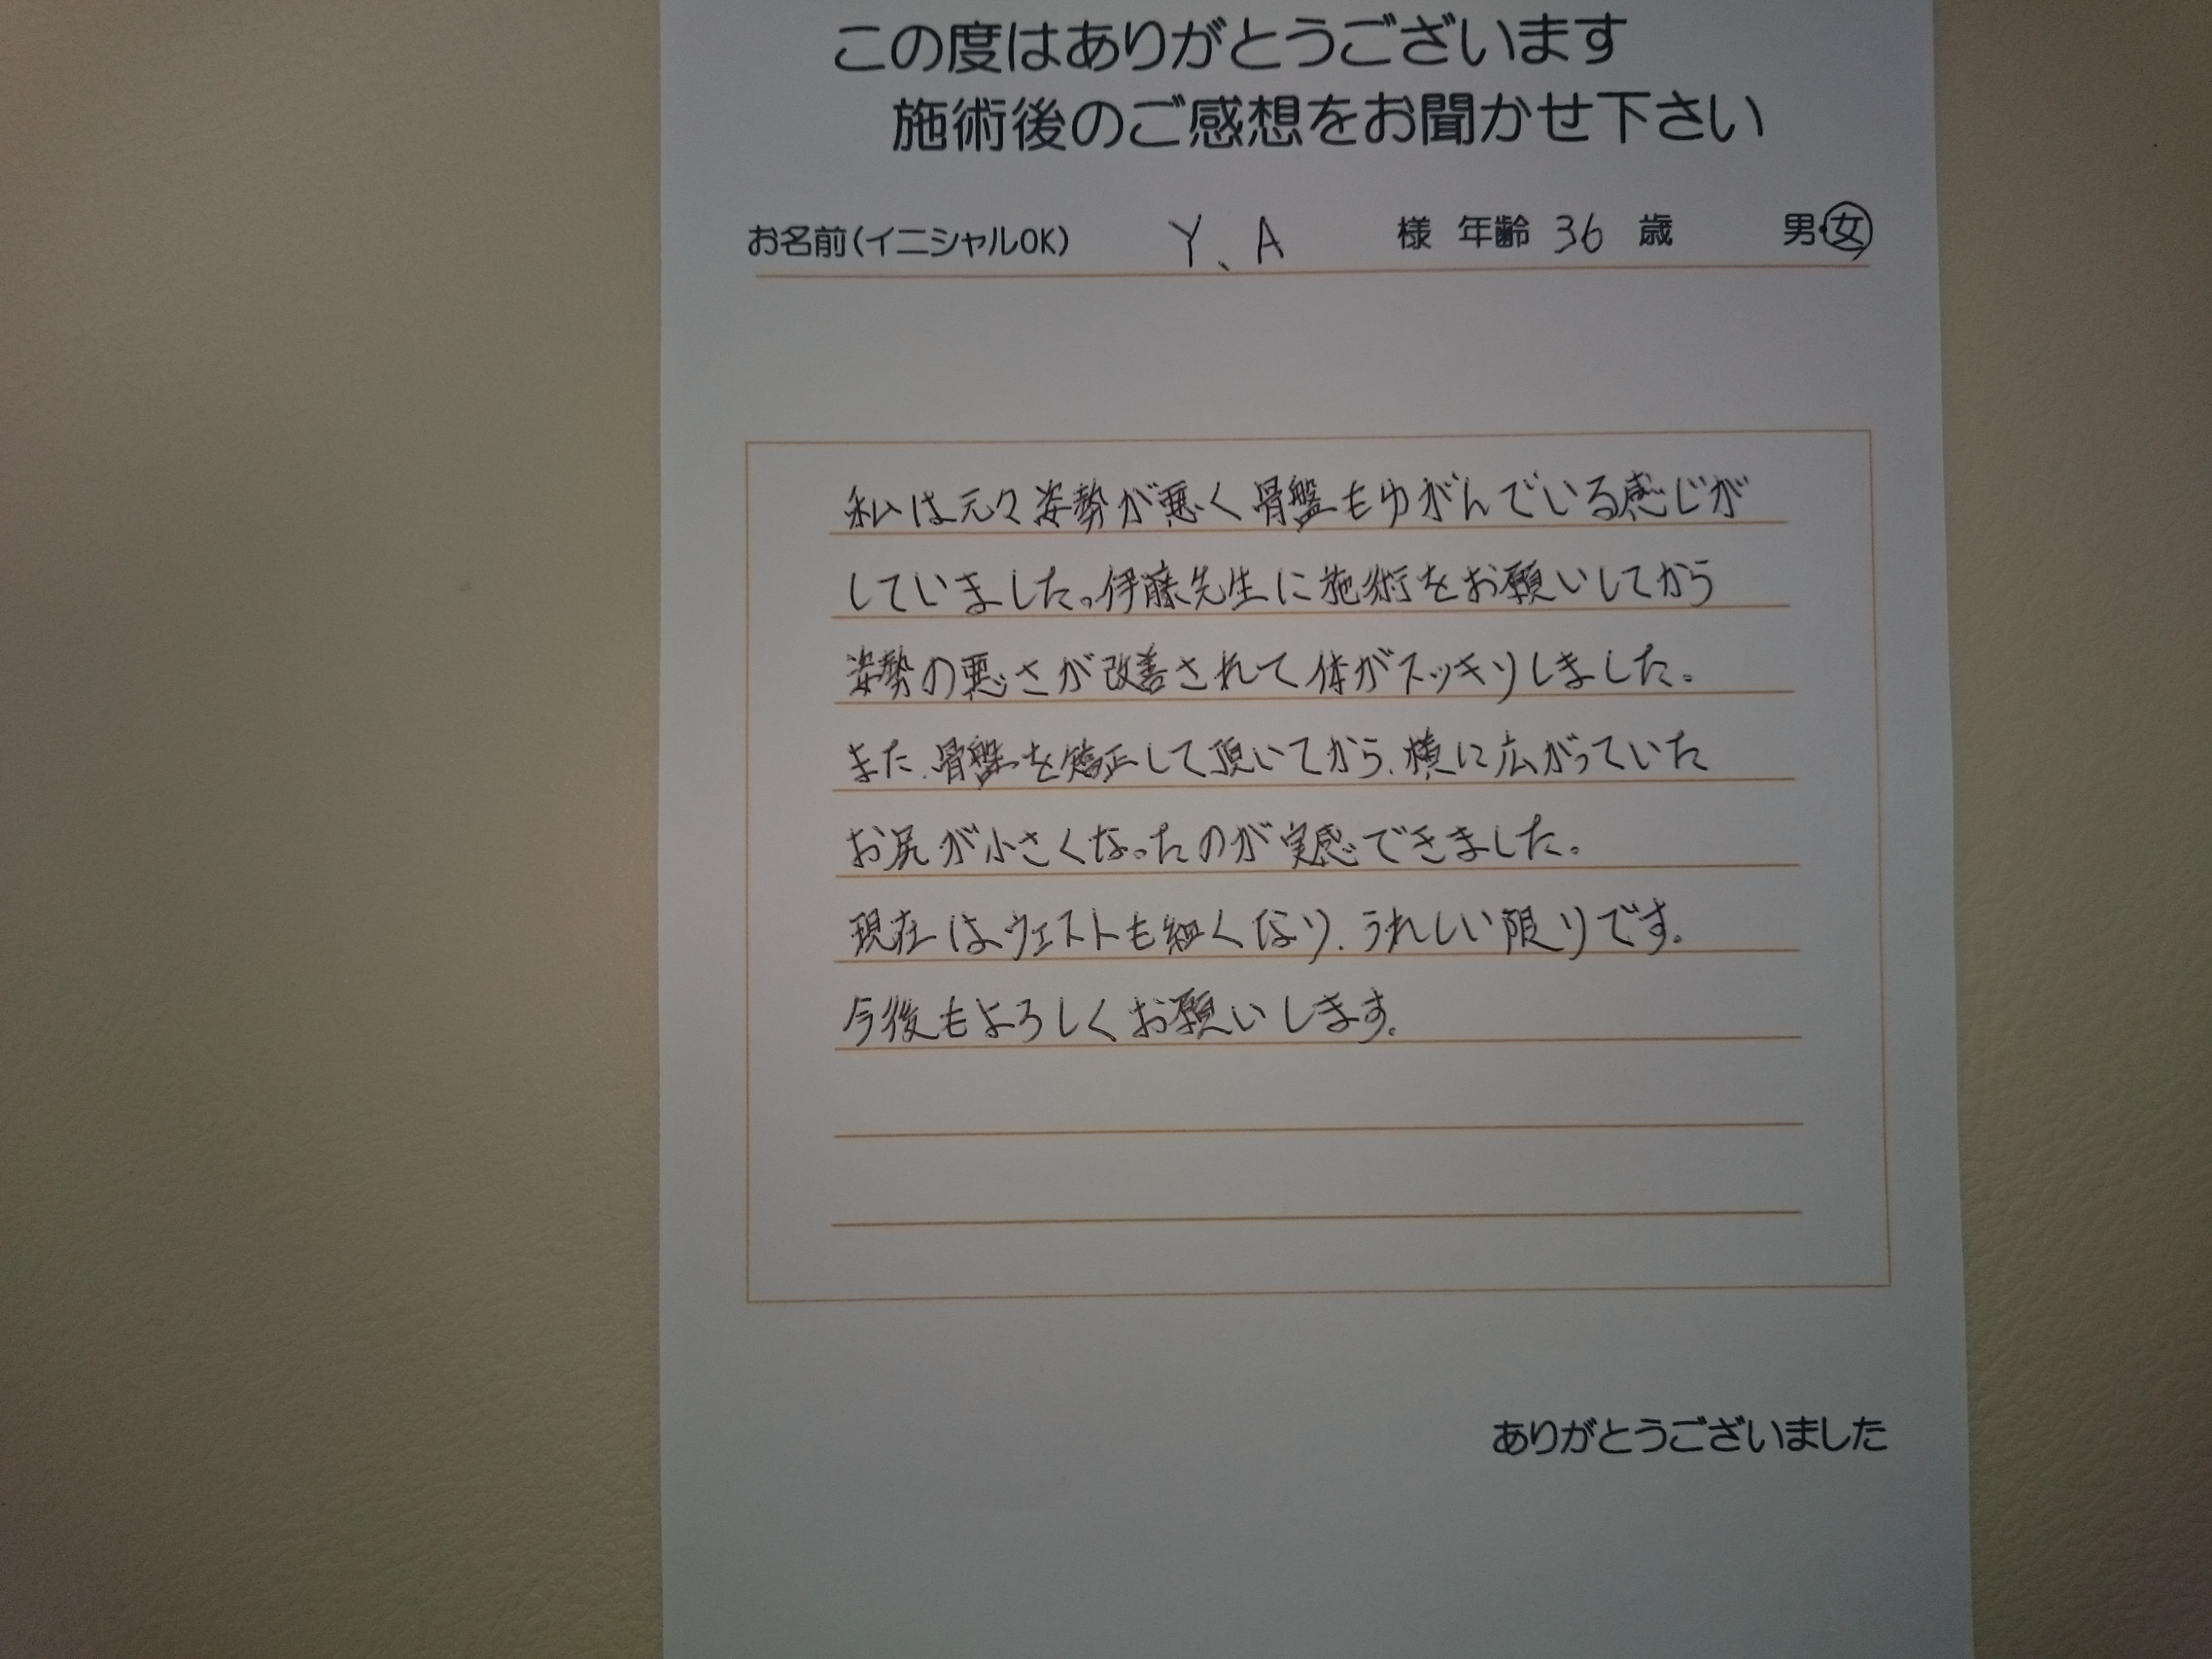 この度はありがとうございます
施術後のご感想をお聞かせ下さい
お名前(イニシャルOK) Y、A 様 年齢 36 歳 男・女
私は元々姿勢が悪く骨盤もゆがんでいる感じが
していました。伊藤先生に施術をお願いしてから
姿勢の悪さが改善されて体がスッキリしました。
また、骨盤を矯正して頂いてから、横に広がっていた
お尻が小さくなったのが実感できました。
現在はウエストも細くなり、うれしい限りです。
今後もよろしくお願いします。
ありがとうございました